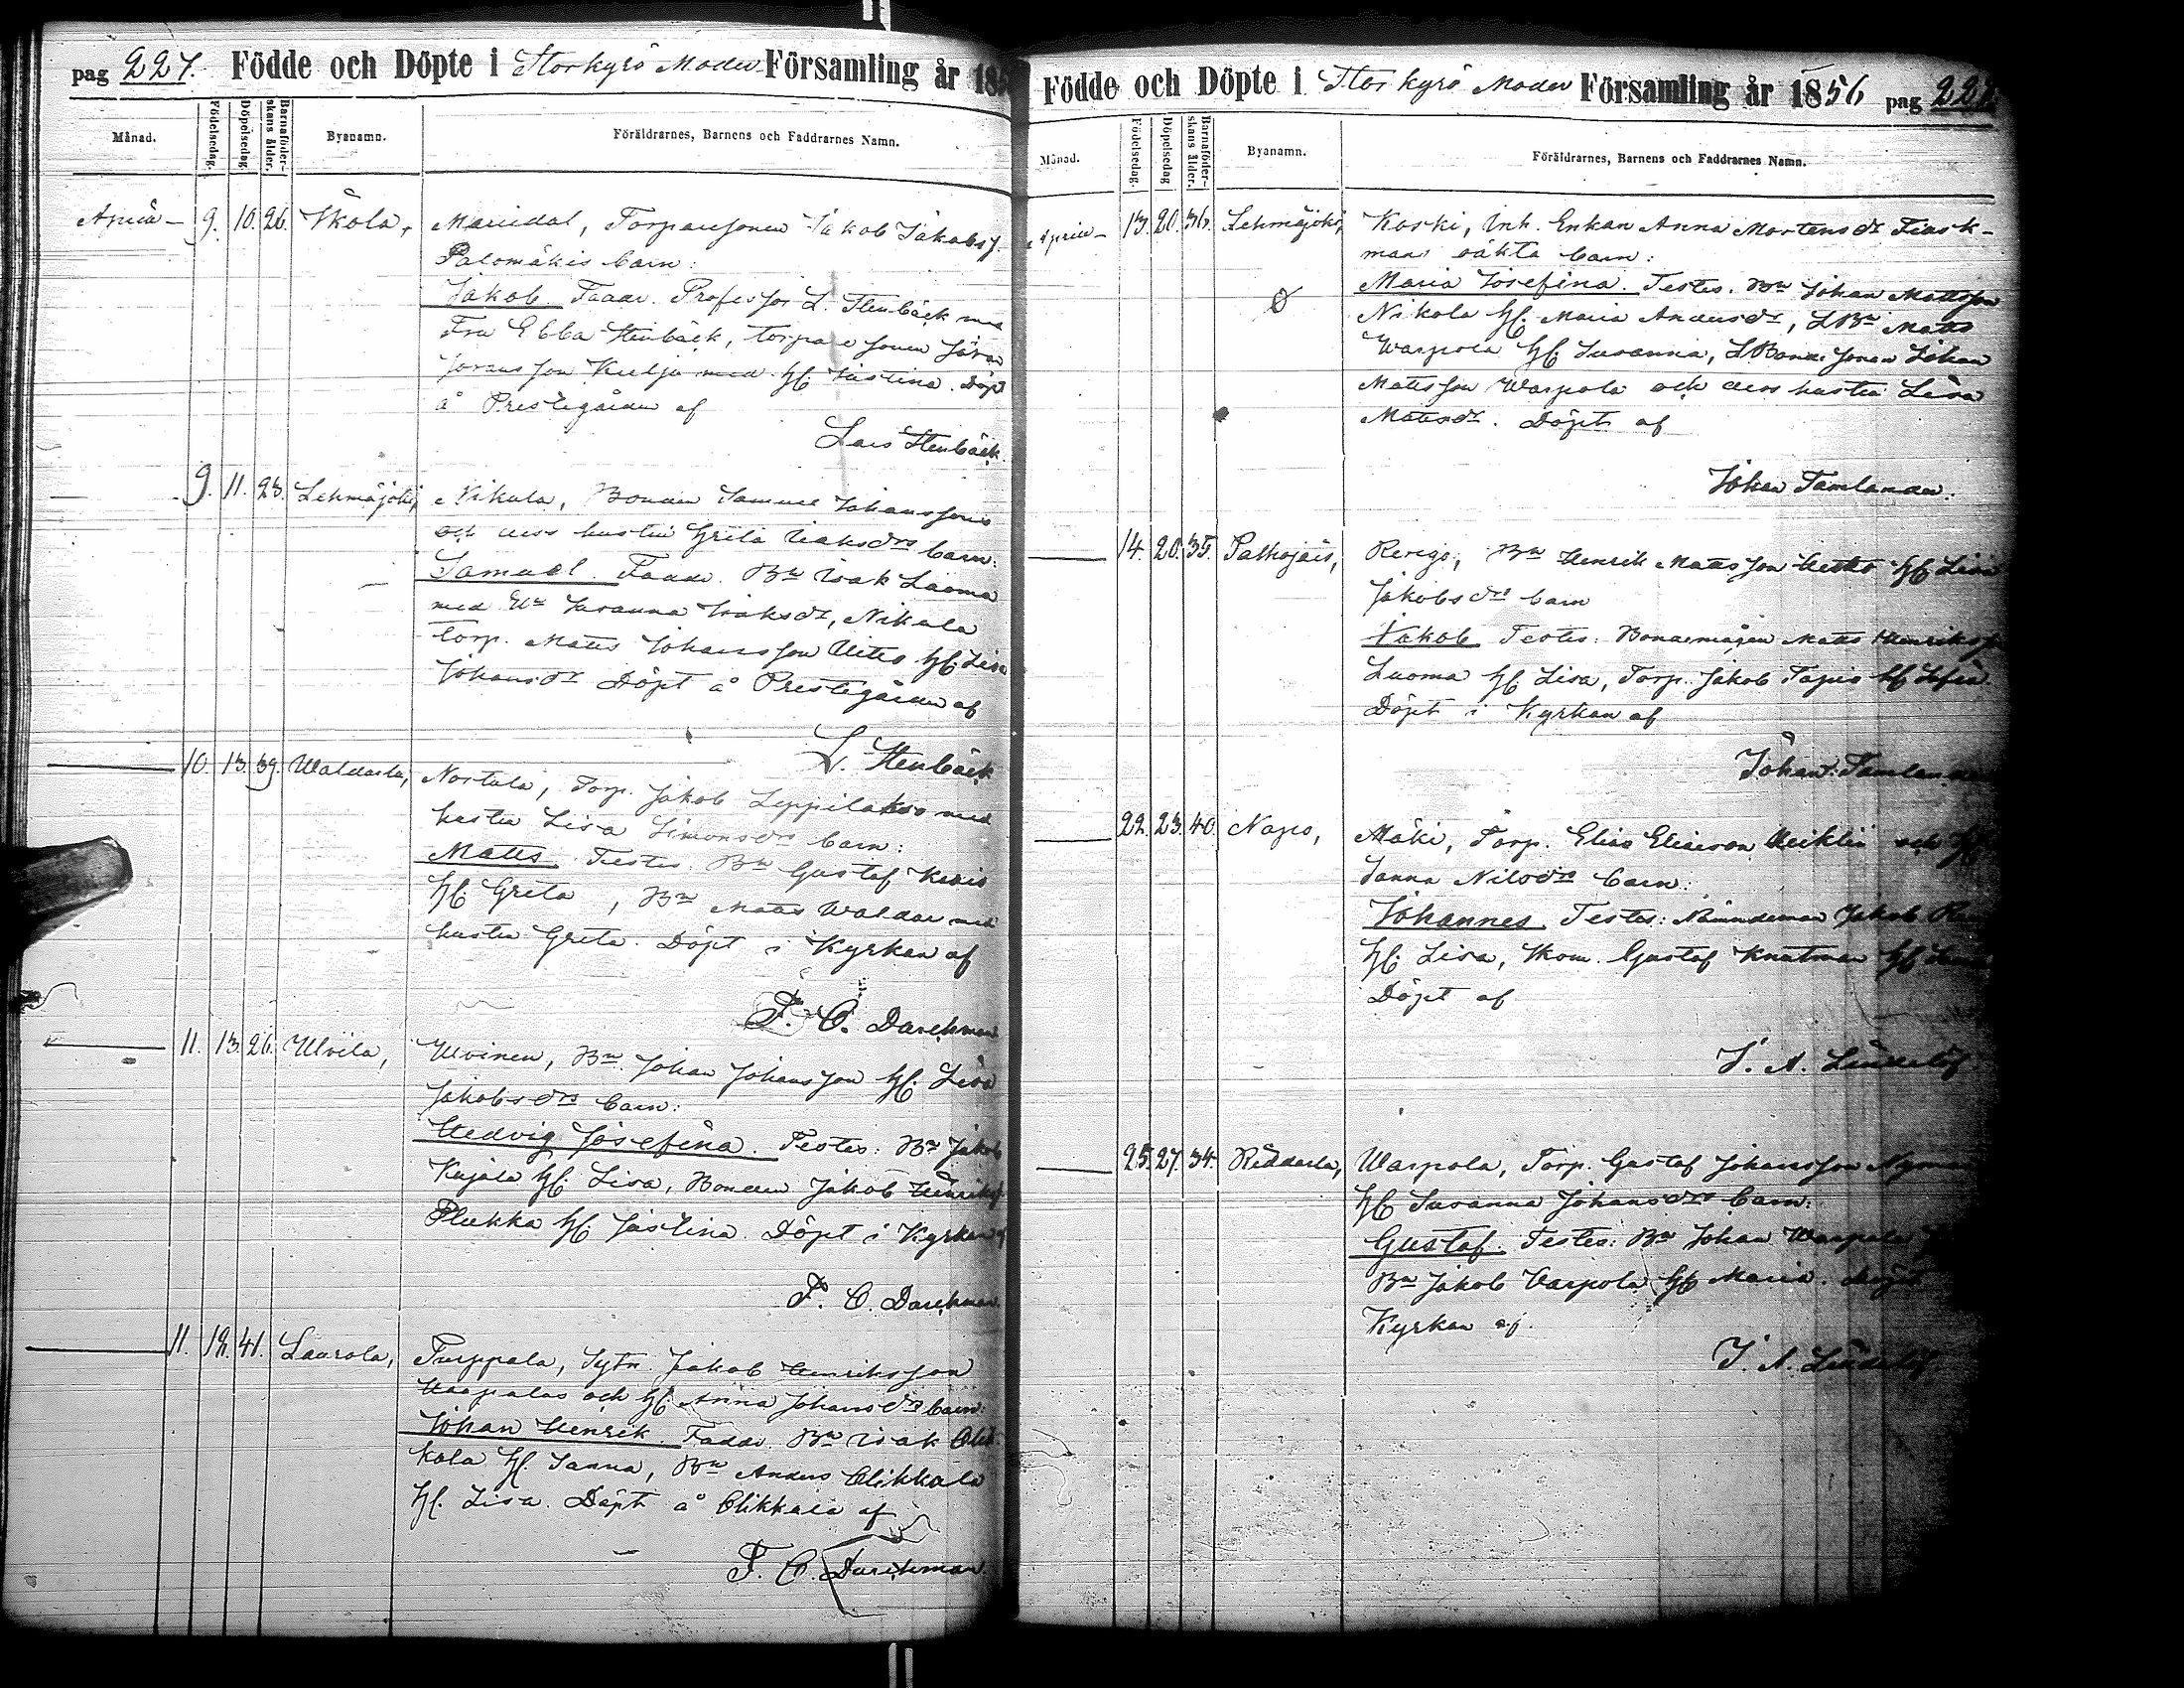 pag 227. Födde och Döpte i Storkyrö Moder Församling år 185
Månad. Födelsedag. Döpelsedag. Barnaföderskans ålder. Byanamn. Föräldrarnes, Barnens och Faddrarnes Namn.
April — 9. 10. 26. Skola, Mariedal, Torparesonen Jakob Jakobs.
Palomäkis barn:
Jakob. Faddr. Professor L. Stenbäck med
Fru Ebba Stenbäck, torparesonen Jöran
Joransson Kulju med H. Justina. Döpt
å Prestegården af
Lars Stenbäck.
9. 11. 23. Lehmäjoki, Nikula, Bonden Samuel Johanssons
och dess hustru Greta Isaksdrs barn:
Samuel. Faddr. Bn Isak Laoma
med Hu Susanna Isaksdr, Nikula
Torp. Matts Johansson Uitto H. Lisa
Johansdr Döpt å Prestegården af
L. Stenbäck
10. 13. 39. Waldarla, Nortula, Torp. Jakob Leppilakso med
hustru Lisa Simonsdrs barn:
Matts. Testes. Bn Gustaf
H. Greta, Bn Matts Waldar med
hustru Greta. Döpt i Kyrkan af
F. O. Durchman
11. 13. 26. Ulvila, Ulvinen, Bn. Johan Johansson H. Lisa
Jakobsdrs barn:
Hedvig Josefina. Testes: Bn Jakob
Kujala H. Lisa, Bonden Jakob Henriks.
Plukka H. Justina. Döpt i Kyrkan af
F. O. Durchman.
11. 18. 41. Laurola, Turppala, Sytn. Jakob Henriksson
Haapalas och H. Anna Johansdrs barn:
Johan Henrik. Faddr. Bn Isak Olik
kala H. Sanna, Bn Anders Olikkala
H. Lisa. Döpt å Olikkala af
F. O. Durchman
Födde och Döpte i Storkyrö Moder Församling år 1856 pag 228
Månad. Födelsedag. Döpelsedag Barnaföderskans ålder. Byanamn. Föräldrarnes, Barnens och Faddrarnes Namn.
April — 13. 20. 36. Lehmäjoki, Koski, Inh. Enkan Anna Mortensdr Fiask-
mans oäkta barn:
Maria Josefina. Testes. Bn Johan Mattsson
Nikola H. Maria Andersdr, LBn Matts
Warpola H. Susanna, LBondesonen Johan
Mattsson Warpola och dess hustru Lisa
Mattsdr. Döpt af
Johan Tamlander.
14. 20. 35. Palhojais, Rengo, Bn Henrik Mattsson H. Lisa
Jakobsdrs barn
Jakob Testes: Bondemågen Matts Henriksson
Luoma H. Lisa, Torp. Jakob Tapio H. Sofia
Döpt i Kyrkan af
Johan Tamlander
22. 23. 40. Napo, Mäki, Torp. Elias Eliasson och H
Sanna Nilsdrs barn:
Johannes. Testes: Nämndeman Jakob
H. Lisa, Skom. Gustaf Knutman H.
Döpt af
J. A. Lindelöf
25. 27. 34. Riddarla, Warpola, Torp. Gustaf Johansson Nyman
H. Susanna Johansdrs barn:
Gustaf. Testes: Bn Johan Warpola
Bn Jakob Varpola H. Maria. Döpt
Kyrkan af.
J. A. Lindelöf